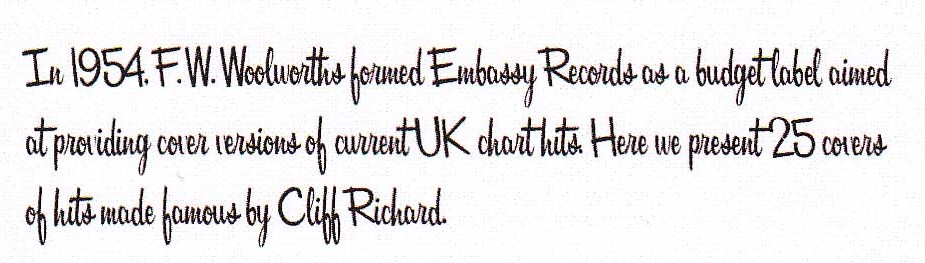 In 1954, F.W. Woolworths formed Embassy Records as a budget label aimed
at providing cover versions of current UK chart hits. Here we present 25 covers
of hits made famous by Cliff Richard.